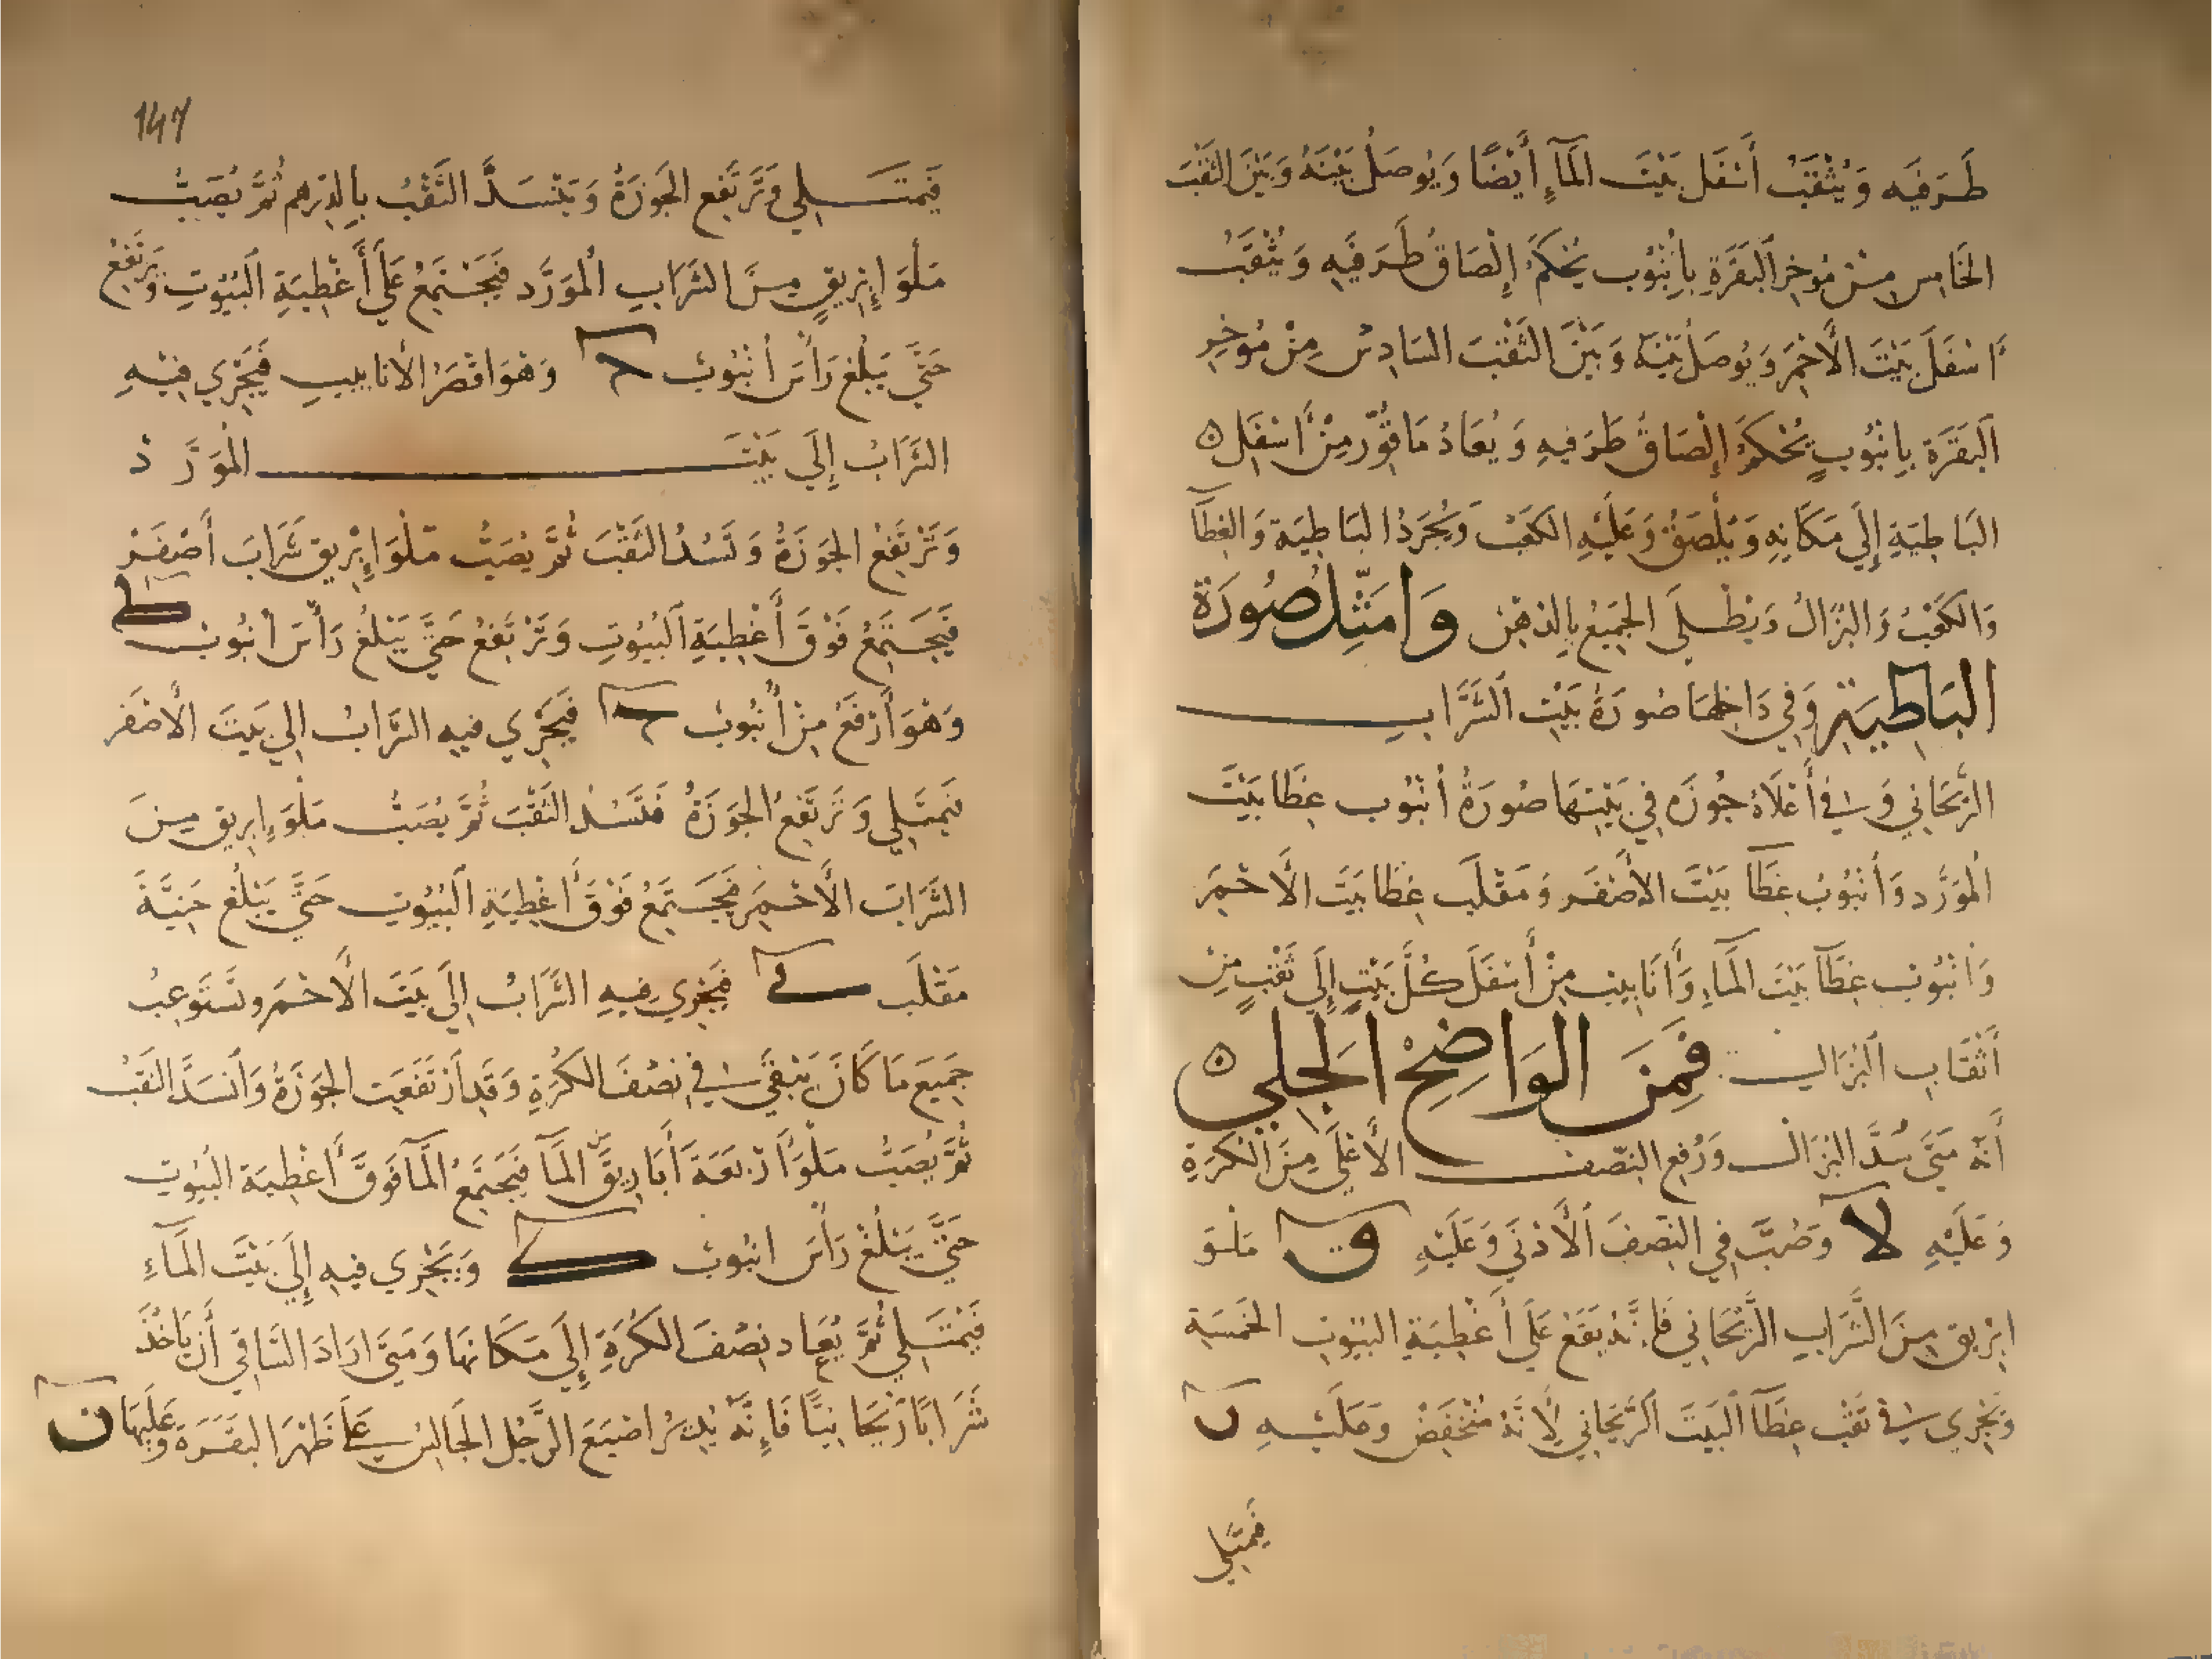 طَرَفَيْه وَيُثْقَبُ أَسْفَل بَيْت المَآءِ أَيْضًا وَيُوصَلُ بَيْنَهُ وَبَيْنَ الثَقْبَ
الخَامِس مِنْ مُوخِر البَقَرَةِ بِأَنْبُوب يُحْكَمُ إِلْصَاقُ طَرَفَيْهِ وَيُثْقَبُ
أَسْفَلَ بَيْتَ الأَحْمَر وَيُوصَلُ بَيْنَهُ وَبَيْنَ الثَقْبَ السَادِسُ مِنْ مُوخِرِ
البَقَرَة بِانْبُوبٍ يُحْكَمُ إِلْصَاقُ طَرَفَيهِ وَيُعَادُ مَا قُوِّر مِنْ أَسْفَل ه
البَاطِيَةِ إِلَى مَكَانِهِ وَيُلْصَقُ وَعَلَيْهِ الكَعْبُ وَيُجْرَدُ البَاطِيَة وَالغِطَآ
وَالكَعْبُ وَالبُزَالُ وَيُطْلَى الجَمِيعُ بِالدِهْنِ وَامَثِّلُ صُورَةَ
البَاطِيَةِ وَفِي دَاخِلِهَا صُورَةُ بَيْت الشَّرَابِ
الرَيْحَانِي وَفِي أَعْلَاهُ جُوزَه فِي بَيْتِهَا صُورَةُ أُنْبُوب غِطَا بَيْتَ
المُوَرَّد وَأُنْبُوبُ غِطَآ بَيْتَ الأَصْفَر وَمَقْلَب غِطَا بَيْتَ الأَحْمَرِ
وَأُنْبُوب غِطَآ بَيْتَ المَآءِ وَأَنَابِيب مِنْ أَسْفَلَ كُلَّ بَيْتٍ إِلَى ثَقْبٍ مِنْ
أَثْقَابِ البُزَال فَمِنَ الوَاضِحِ الجَلِي ه
أَنَّهُ مَتَى سُدَّ البُزَال وَرُفِع النِصْف الأَعْلَى مِنَ الكُرَةِ
وَعَلَيْهِ لا وَصُبَّ فِي النِصْفَ الأَدْنَى وَعَلَيْهِ ق مَلْوَ
ابْرِيق مِنَ الشَّرَابِ الرَّيْحَانِي فَإِنَّهُ يَقَعُ عَلَى أَغْطِيَة البُيُوت الخَمْسَةِ
وَيَجْرِي فِي ثَقْب غِطَآ البَيْتَ الرَّيْحَانِي لِأَنَّهُ مُنْخَفِضْ وَعَلَيْهِ ن
فَيَمْتَلِي
147
فَيَمْتَلِي وَتَرْتَفِع الجَوْزَةُ وَيَنْسَدَّ الثَقْبُ بِالدِرْهم ثُمَّ يُصَبُّ
مَلْوَ إِبْرِيقٍ مِنَ الشَرَابِ المُوَرَّد فَيَجْتَمِعُ عَلَى أَغْطِيَةِ البُيُوتِ وَيَرْتَفِعُ
حَتَّى يَبْلُغ رَأْسَ أُنْبُوبُ وَهُوَ اقْصَرُ الأَنابيبِ فَيَجْرِي فِيْهِ
الشَرَابُ إِلَى بَيْتَ المُوَرَّد
وَتَرْتَفِعُ الجَوْزَةُ وَتَسُدُ الثَقْبَ ثُمَّ يُصَبُّ مَلْوَ إِبْرِيق شَرَابَ أَصْفَرْ
فَيَجْتَمِعُ فَوْقَ أَغْطِيَةِ البُيُوتِ وَتَرْتَفِعُ حَتَّى يَبْلُغُ رَأْسَ أُنْبُوبْ ط
وَهُوَ أَرْفَعُ مِنْ أُنْبُوبُ فَيَجْرِي فِيهِ الشَّرابُ الي بَيتَ الأَصْفَر
فَيَمْتَلِي وَتَرْتَفِعُ الجَوْزَةُ فَتَسُدُ الثَقْبَ ثُمَّ يُصَبُّ مَلْوَ إبريق مِنَ
الشَّرَابَ الأَحْمَر فَيَجْتَمِعُ فَوْقَ أَغْطِيَةِ البُيُوت حَتَّى يَبْلُغ حَنِيَّةَ
مَقْلَب فَيَجْرِي فِيهِ الشَّرَابُ إِلَى بَيْتَ الأَحْمَر وتَسْتَوعِبُ
جَمِيعَ مَا كَانَ يَبْقَى فِي نِصْفَ الكُرَةِ وَقَدِ أَرْتَفَعَت الجَوْزَةُ وَأَنْسَدَّ الثَقْبُ
ثُمَّ يُصَبُّ مَلْوَ أَرْبَعَةَ أَبَارِيقَ المَآ فَيَجْتَمِعُ المَآ فَوْقَ أَغْطِيَة البُيُوت
حَتَّى يَبْلُغُ رَأْسَ انْبُوبُ ك وَيَجْرِي فيهِ إِلَى بَيْتَ المَآءِ
فَيَمْتَلِي ثُمَّ يُعَاد نِصْفَ الكُرَةِ إِلَى مَكَانهَا وَمَتَى ارَادَ السَّاقِي أَنْ يَاخُذَ
شَرَابًا رَيْحَانِيًّا فَإِنَّهُ يُدِيرُ اصْبَعَ الرَّجُل الجَالِسُ عَلَى ظَهْرَ البَقَرَة وَعَلَيْهَا ن